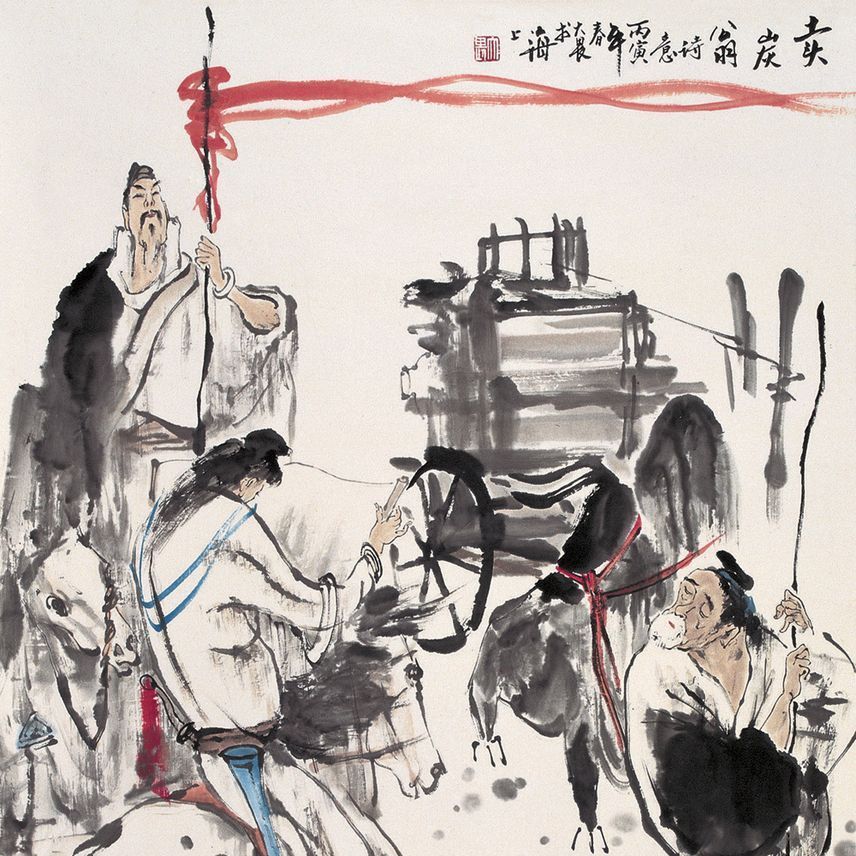 卖炭翁诗意丙寅年春大畏海上